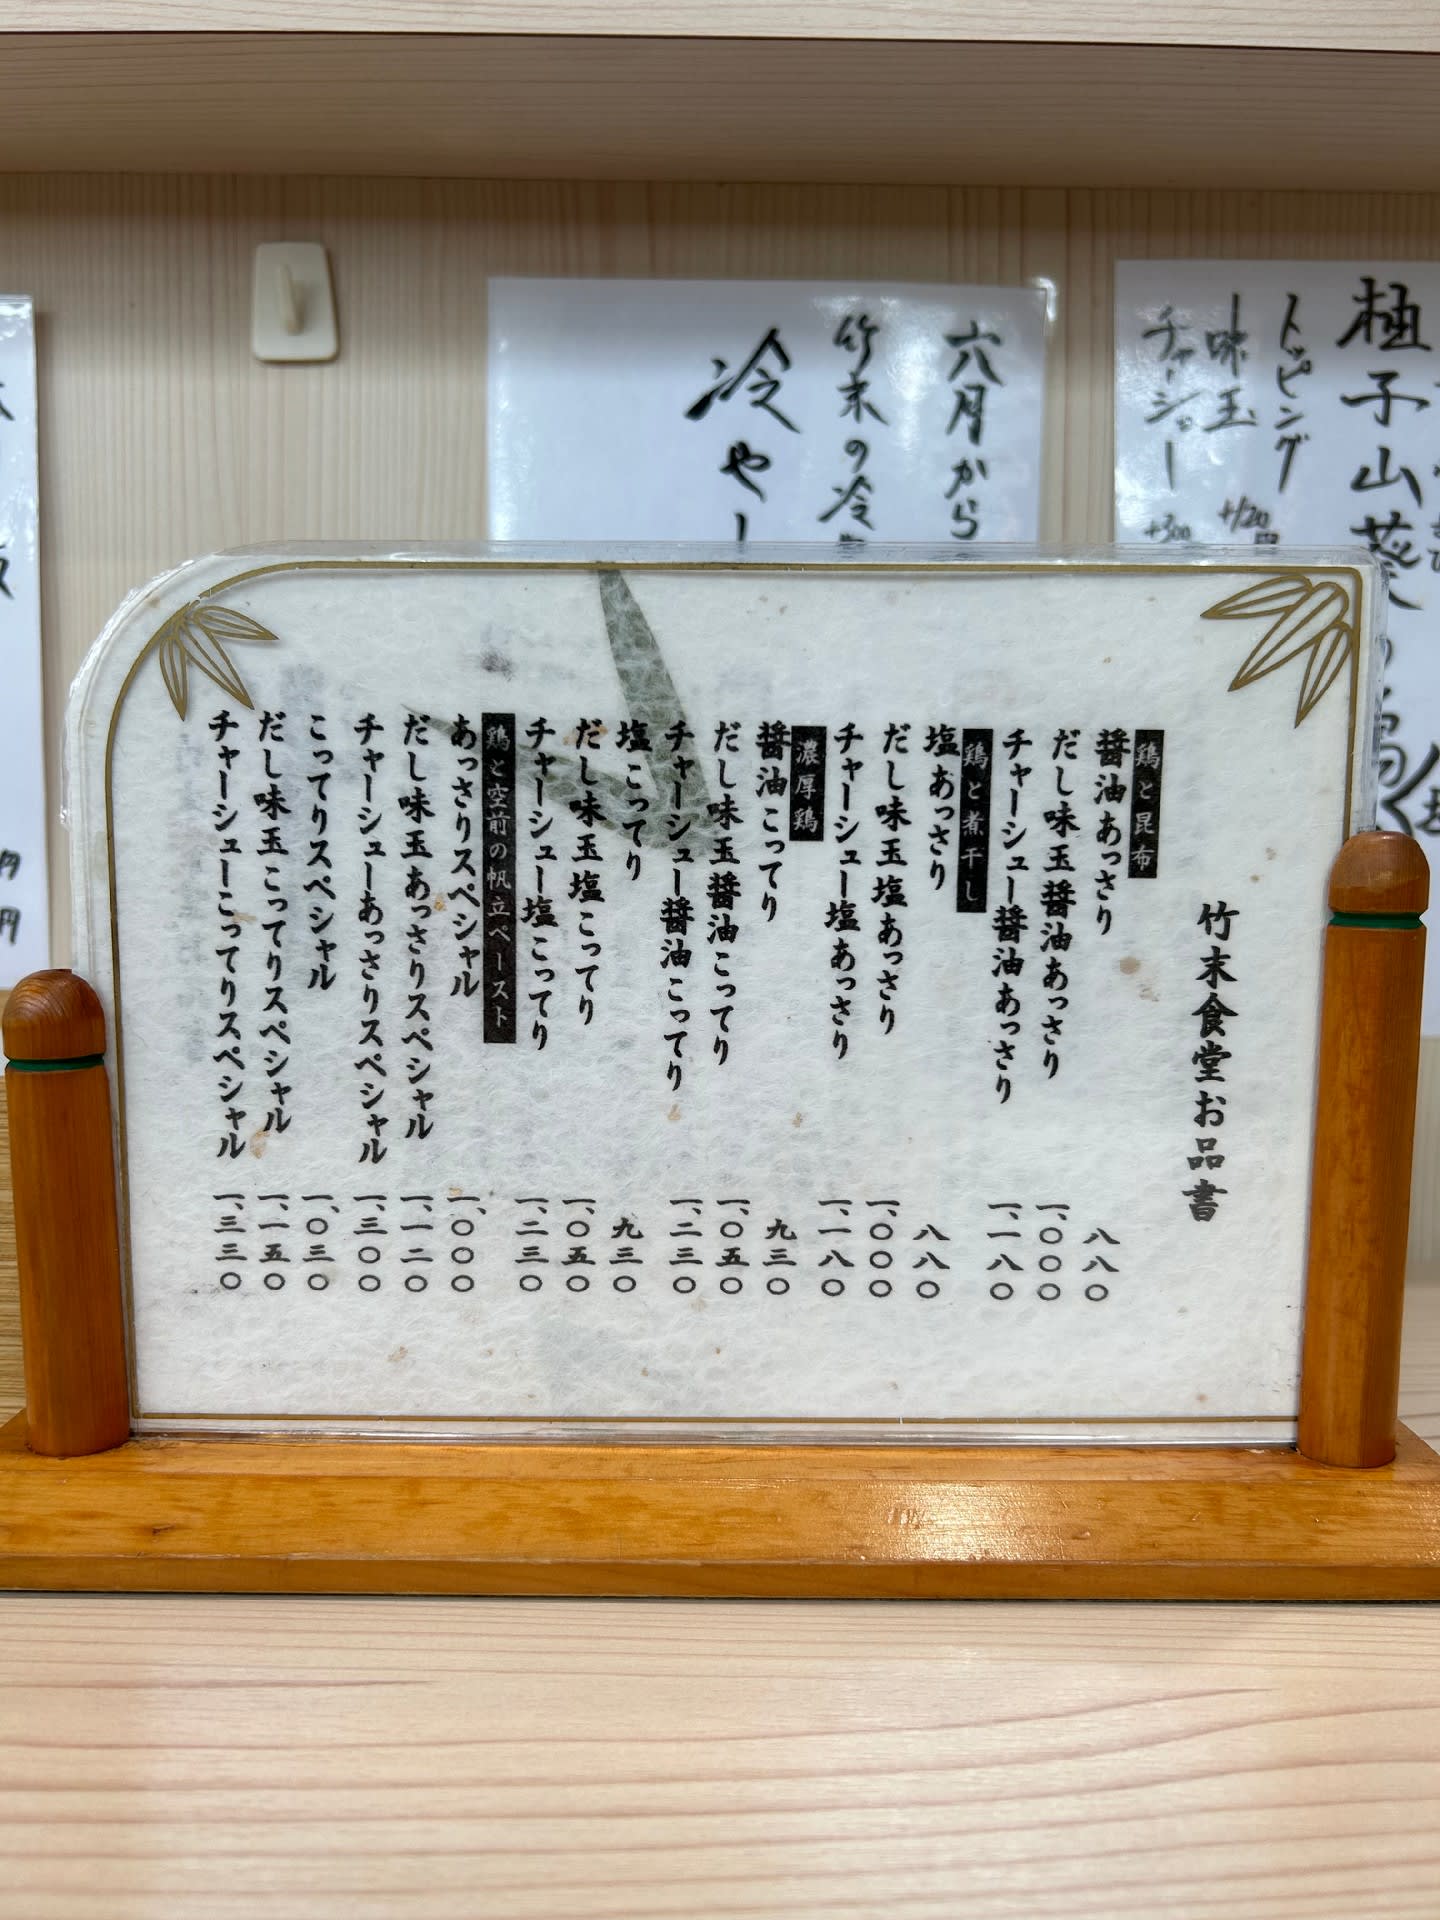 竹末食堂お品書
鶏と昆布
醤油あっさり 八八〇
だし味玉醤油あっさり 一、〇〇〇
チャーシュー醤油あっさり 一、一八〇
鶏と煮干し
塩あっさり 八八〇
だし味玉塩あっさり 一、〇〇〇
チャーシュー塩あっさり 一、一八〇
濃厚鶏
醤油こってり 九三〇
だし味玉醤油こってり 一、〇五〇
チャーシュー醤油こってり 一、二三〇
塩こってり 九三〇
だし味玉塩こってり 一、〇五〇
チャーシュー塩こってり 一、二三〇
鶏と空前の帆立ペースト
あっさりスペシャル 一、〇〇〇
だし味玉あっさりスペシャル 一、一二〇
チャーシューあっさりスペシャル 一、三〇〇
こってりスペシャル 一、〇三〇
だし味玉こってりスペシャル 一、一五〇
チャーシューこってりスペシャル 一、三三〇
トッピング
味玉 +120円
チャーシュー +300
六月から
竹末の冷
冷やし
円
円